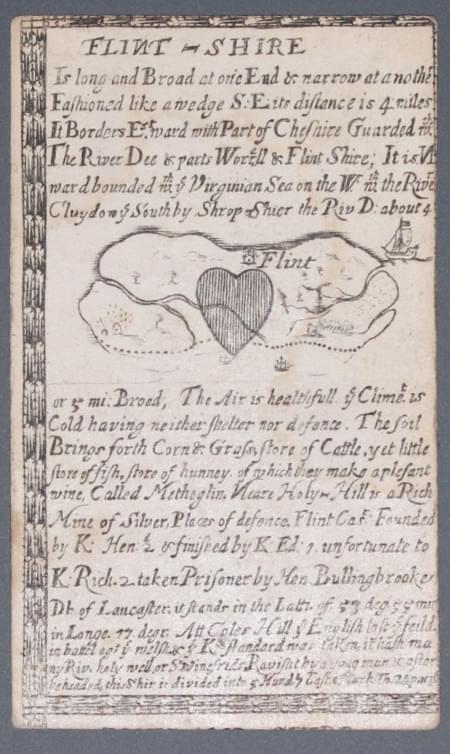 FLINT - SHIRE
Is long and Broad at one End & narrow at anothe
Fashioned like a wedge S: E its distance is 4 miles
It Borders Est ward with Part of Cheshire Guarded wth
The River Dee & parts Worell & Flint Shire; It is N
ward bounded wth ye Virginian Sea on the W. wth the Rive
Cluydon ye South by Shrop-Shier the Riv D: about 4
Flint
or 5 mi. Broad, The Air is healthfull ye Clime is
Cold having neither shelter nor defence. The soil
Brings forth Corn & Grass, store of Cattle, yet little
store of fish, store of hunney. of which they make a plesant
wine, Called Metheglin, Neare Holy-Hill is a Rich
Mine of Silver, Places of defence, Flint Cas: Founded
by K: Hen: 2 & finished by K Ed: 1. unfortunate to
K: Rich. 2 taken Prisoner by Hen Bullingbrooke
Dk of Lancaster, it stands in the Latt: of 53 deg 55 min
in Longe. 17 degr. Att Coles Hill ye English lost ye feild
in battel agt ye welsh & ye Ks standard was taken, it hath ma
ny Riv. holy well or S winefrids Ravisht by a young man & after
beheaded, this Shir is divided into 5 Hund